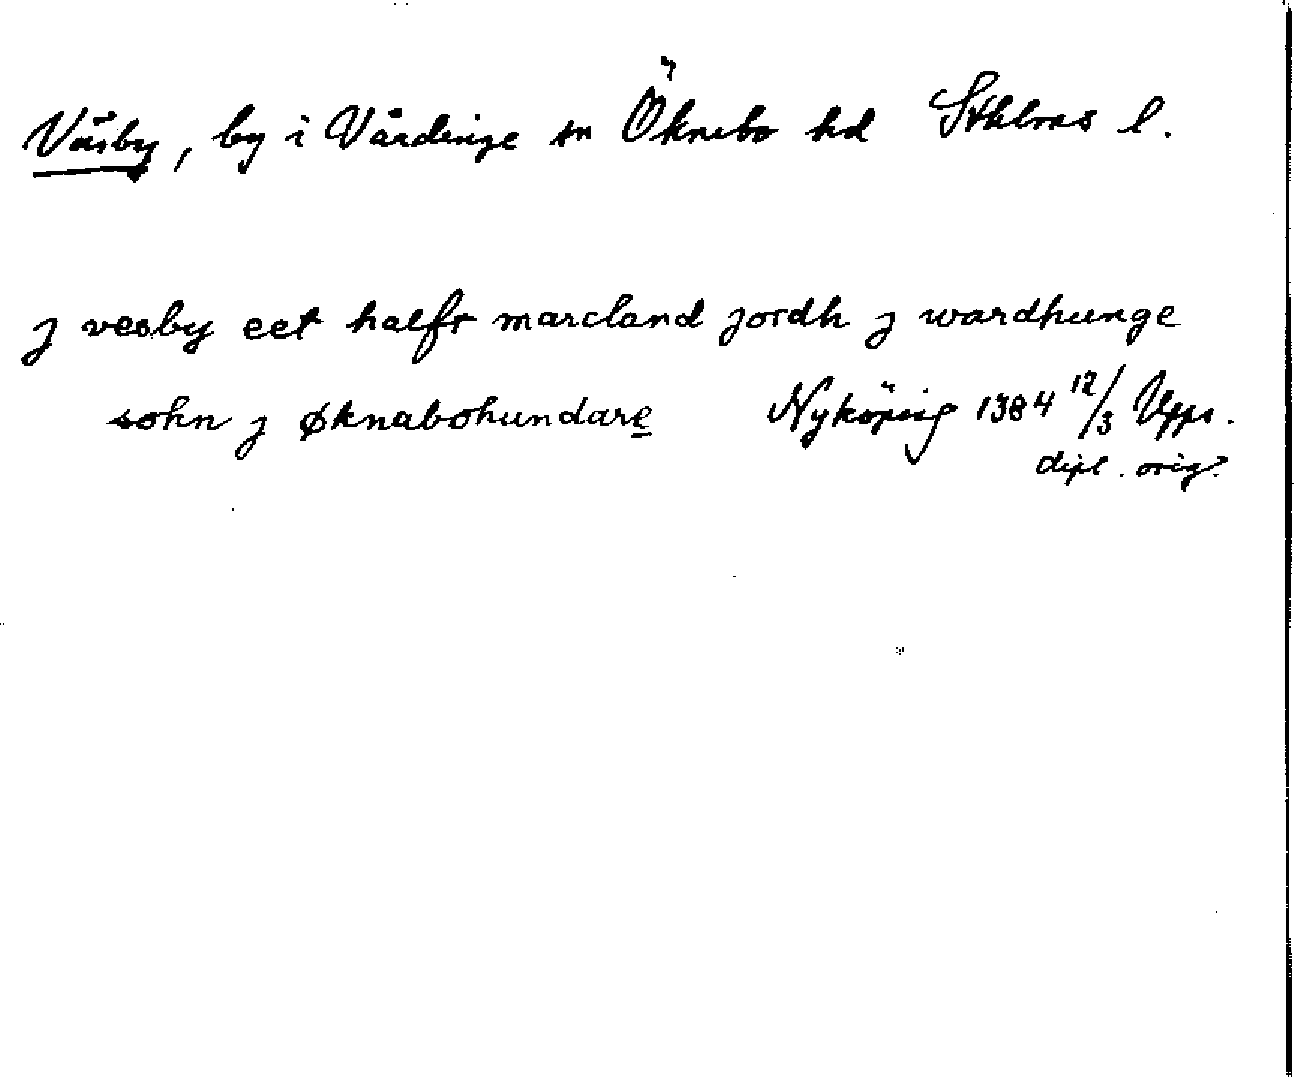 Väsby, by i Vårdinge sn Öknebo hd Sthlms l.
j vesby eet halft marcland jordh j wardhunge
sokn j øknabohundare Nyköping 1384 12/3 Upps.
dipl. orig.